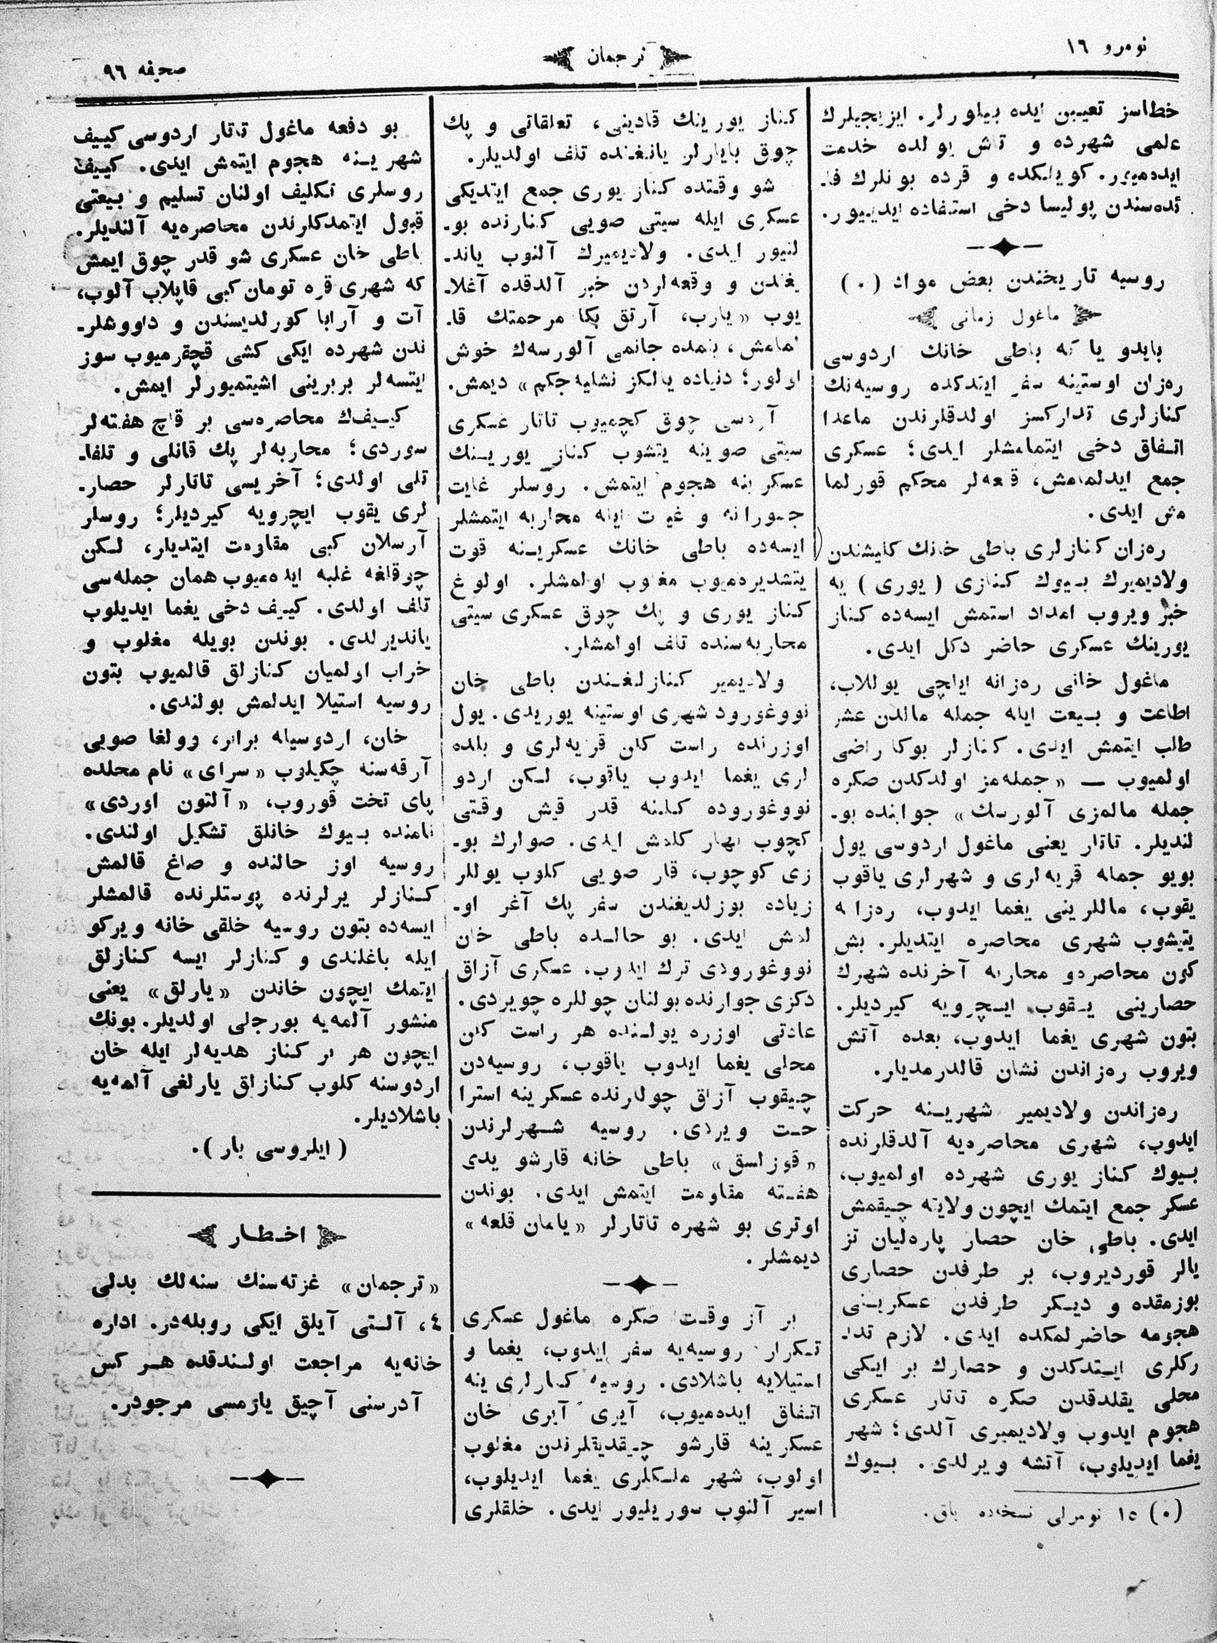 نومرو ١٦
ترجمان
صحیفه ٩٦
خطاسز تعیین ایده بیلورلر. ایزیجیلرك
علمی شهرده و تاش یولده خدمت
ایده‌میور. کویلکده و قرده بونلرك فا-
ئده‌سندن پولیسا دخی استفاده ایدییور.
روسیه تاریخندن بعض مواد (٠)
ماغول زمانی
بایدو یا که باطی خانك اردوسی
ره‌زان اوستینه سفر ایتدکده روسیه‌نك
کنازلری تدارکسز اولدقلرندن ماعدا
اتفاق دخی ایتمامشلر ایدی؛ عسکری
جمع ایدلمامش، قلعه‌لر محکم قورلما
مش ایدی.
ره‌زان کنازلری باطی خانك کلیشندن
ولادیمیرك بیوك کنازی (یوری) یه
خبر ویروب امداد استمش ایسه‌ده کناز
یورینك عسکری حاضر دکل ایدی.
ماغول خانی ره‌زانه ایلچی یوللاب،
اطاعت و بیعت ایله جمله مالدن عشر
طلب ایتمش ایدی. کنازلر بوکا راضی
اولمیوب — «جمله‌مز اولدکدن صکره
جمله مالمزی آلورسك» جوابنده بو-
لندیلر. تاتار یعنی ماغول اردوسی یول
بویو جمله قریه‌لری و شهرلری یاقوب
یقوب، ماللرینی یغما ایدوب، ره‌زانه
یتیشوب شهری محاصره ایتدیلر. بش
کون محاصره‌و محاربه آخرنده شهرك
حصارینی یقوب ایچرویه کیردیلر.
بتون شهری یغما ایدوب، بعده آتش
ویروب ره‌زاندن نشان قالدرمدیلر.
ره‌زاندن ولادیمیر شهرینه حرکت
ایدوب، شهری محاصره‌یه آلدقلرنده
بیوك کناز یوری شهرده اولمیوب،
عسکر جمع ایتمك ایچون ولایته چیقمش
ایدی. باطی خان حصار پاره‌لیان تز
یالر قوردیروب، بر طرفدن حصاری
بوزمقده و دیکر طرفدن عسکرینی
هجومه حاضرلمکده ایدی. لازم تدا-
رکلری ایتدکدن و حصارك بر ایکی
محلی یقلدقدن صکره تاتار عسکری
هجوم ایدوب ولادیمیری آلدی؛ شهر
یغما ایدیلوب، آتشه ویرلدی. بیوك
(٠) ١٥ نومرلی نسخه‌ده باق.
کناز یورینك قادینی، تعلقاتی و پك
چوق بایارلر یانغنده تلف اولدیلر.
شو وقتده کناز یوری جمع ایتدیکی
عسکری ایله سیتی صویی کنارنده بو-
لنیور ایدی. ولادیمیرك آلنوب یاند-
یغندن و وقعه‌لردن خبر آلدقده آغلا-
یوب «یارب، آرتق بکا مرحمتك قا-
لمامش، بنمده جانمی آلورسه‌ك خوش
اولور؛ دنیاده یالکز نشلیه‌جکم» دیمش.
آردسی چوق کچمیوب تاتار عسکری
سیتی صوینه یتشوب کناز یورینك
عسکرینه هجوم ایتمش. روسلر غایت
جسورانه و غیرت ایله محاربه ایتمشلر
ایسه‌ده باطی خانك عسکرینه قوت
یتشدیره‌میوب مغلوب اولمشلر. اولوغ
کناز یوری و پك چوق عسکری سیتی
محاربه‌سنده تلف اولمشلر.
ولادیمیر کنازلغندن باطی خان
نووغورود شهری اوستینه یوریدی. یول
اوزرنده راست کلن قریه‌لری و بلده
لری یغما ایدوب یاقوب، لکن اردو
نووغوروده کلینه قدر قیش وقتی
کچوب بهار کلمش ایدی. صولرك بو-
زی کوچوب، قار صویی کلوب یوللر
زیاده بوزلدیغندن سفر پك آغر او-
لمش ایدی. بو حالده باطی خان
نووغورودی ترك ایدوب. عسکری آزاق
دکزی جوارنده بولنان چوللره چویردی.
عادتی اوزره یولنده هر راست کلن
محلی یغما ایدوب یاقوب، روسیه‌دن
چیقوب آزاق چوللرنده عسکرینه استرا
حت ویردی. روسیه شهرلرندن
«قوزلسق» باطی خانه قارشو یدی
هفته مقاومت ایتمش ایدی. بوندن
اوتری بو شهره تاتارلر «یامان قلعه»
دیمشلر.
بر آز وقت صکره ماغول عسکری
تکرار روسیه‌یه سفر ایدوب، یغما و
استیلایه باشلادی. روسیه کنازلری ینه
اتفاق ایده‌میوب، آیری آیری خان
عسکرینه قارشو چیقدیقلرندن مغلوب
اولوب، شهر ملکلری یغما ایدیلوب،
اسیر آلنوب سوریلیور ایدی. خلقلری
بو دفعه ماغول تاتار اردوسی کییف
شهرینه هجوم ایتمش ایدی. کییف
روسلری تکلیف اولنان تسلیم و بیعتی
قبول ایتمدکلرندن محاصره‌یه آلندیلر.
باطی خان عسکری شو قدر چوق ایمش
که شهری قره تومان کبی قاپلاب آلوب،
آت و آرابا کورلدیسندن و داووشلر-
ندن شهرده ایکی کشی قچقرمیوب سوز
ایتسه‌لر بربرینی اشیتمیورلر ایمش.
کییفك محاصره‌سی بر قاچ هفته‌لر
سوردی؛ محاربه‌لر پك قانلی و تلفا-
تلی اولدی؛ آخریسی تاتارلر حصار-
لری یقوب ایچرویه کیردیلر؛ روسلر
آرسلان کبی مقاومت ایتدیلر، لکن
چوقلغه غلبه ایده‌میوب همان جمله‌سی
تلف اولدی. کییف دخی یغما ایدیلوب
یاندیرلدی. بوندن بویله مغلوب و
خراب اولمیان کنازلق قالمیوب بتون
روسیه استیلا ایدلمش بولندی.
خان، اردوسیله برابر، وولغا صویی
آرقه‌سنه چکیلوب «سرای» نام محلده
پای تخت قوروب، «آلتون اوردی»
نامنده بیوك خانلق تشکیل اولندی.
روسیه اوز حالنده و صاغ قالمش
کنازلر یرلرنده پوستلرنده قالمشلر
ایسه‌ده بتون روسیه خلقی خانه ویرکو
ایله باغلندی و کنازلر ایسه کنازلق
ایتمك ایچون خاندن «یارلق» یعنی
منشور آلمه‌یه بورجلی اولدیلر. بونك
ایچون هر بر کناز هدیه‌لر ایله خان
اردوسنه کلوب کنازلق یارلغی آلمه‌یه
باشلادیلر.
(ایلروسی بار).
اخطار
«ترجمان» غزته‌سنك سنه‌لك بدلی
٤، آلتی آیلق ایکی روبله‌در. اداره
خانه‌یه مراجعت اولندقده هر کس
آدرسنی آچیق یازمسی مرجودر.